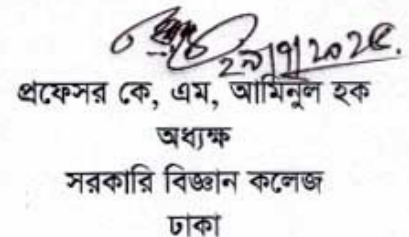 ২৯|৭|২০২৫.
প্রফেসর কে, এম, আমিনুল হক
অধ্যক্ষ
সরকারি বিজ্ঞান কলেজ
ঢাকা